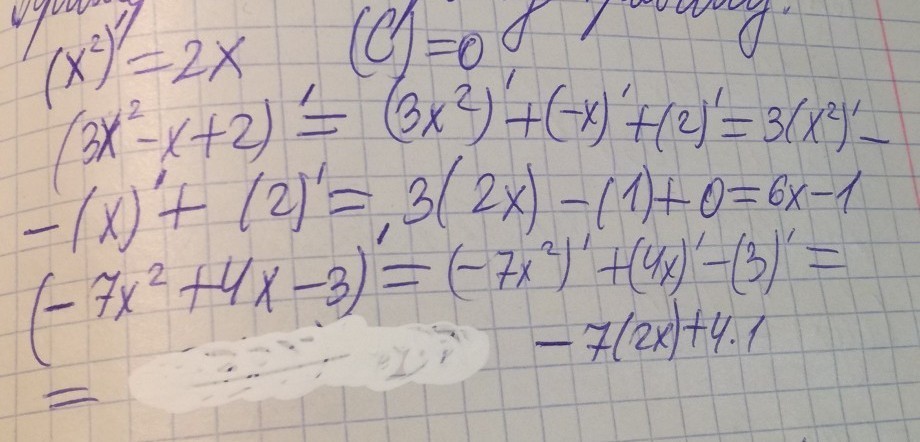 (x²)' = 2x (C)' = 0
(3x² - x + 2)' = (3x²)' + (-x)' + (2)' = 3(x²)' -
- (x)' + (2)' = 3(2x) - (1) + 0 = 6x - 1
(-7x² + 4x - 3)' = (-7x²)' + (4x)' - (3)' =
= - 7(2x) + 4·1